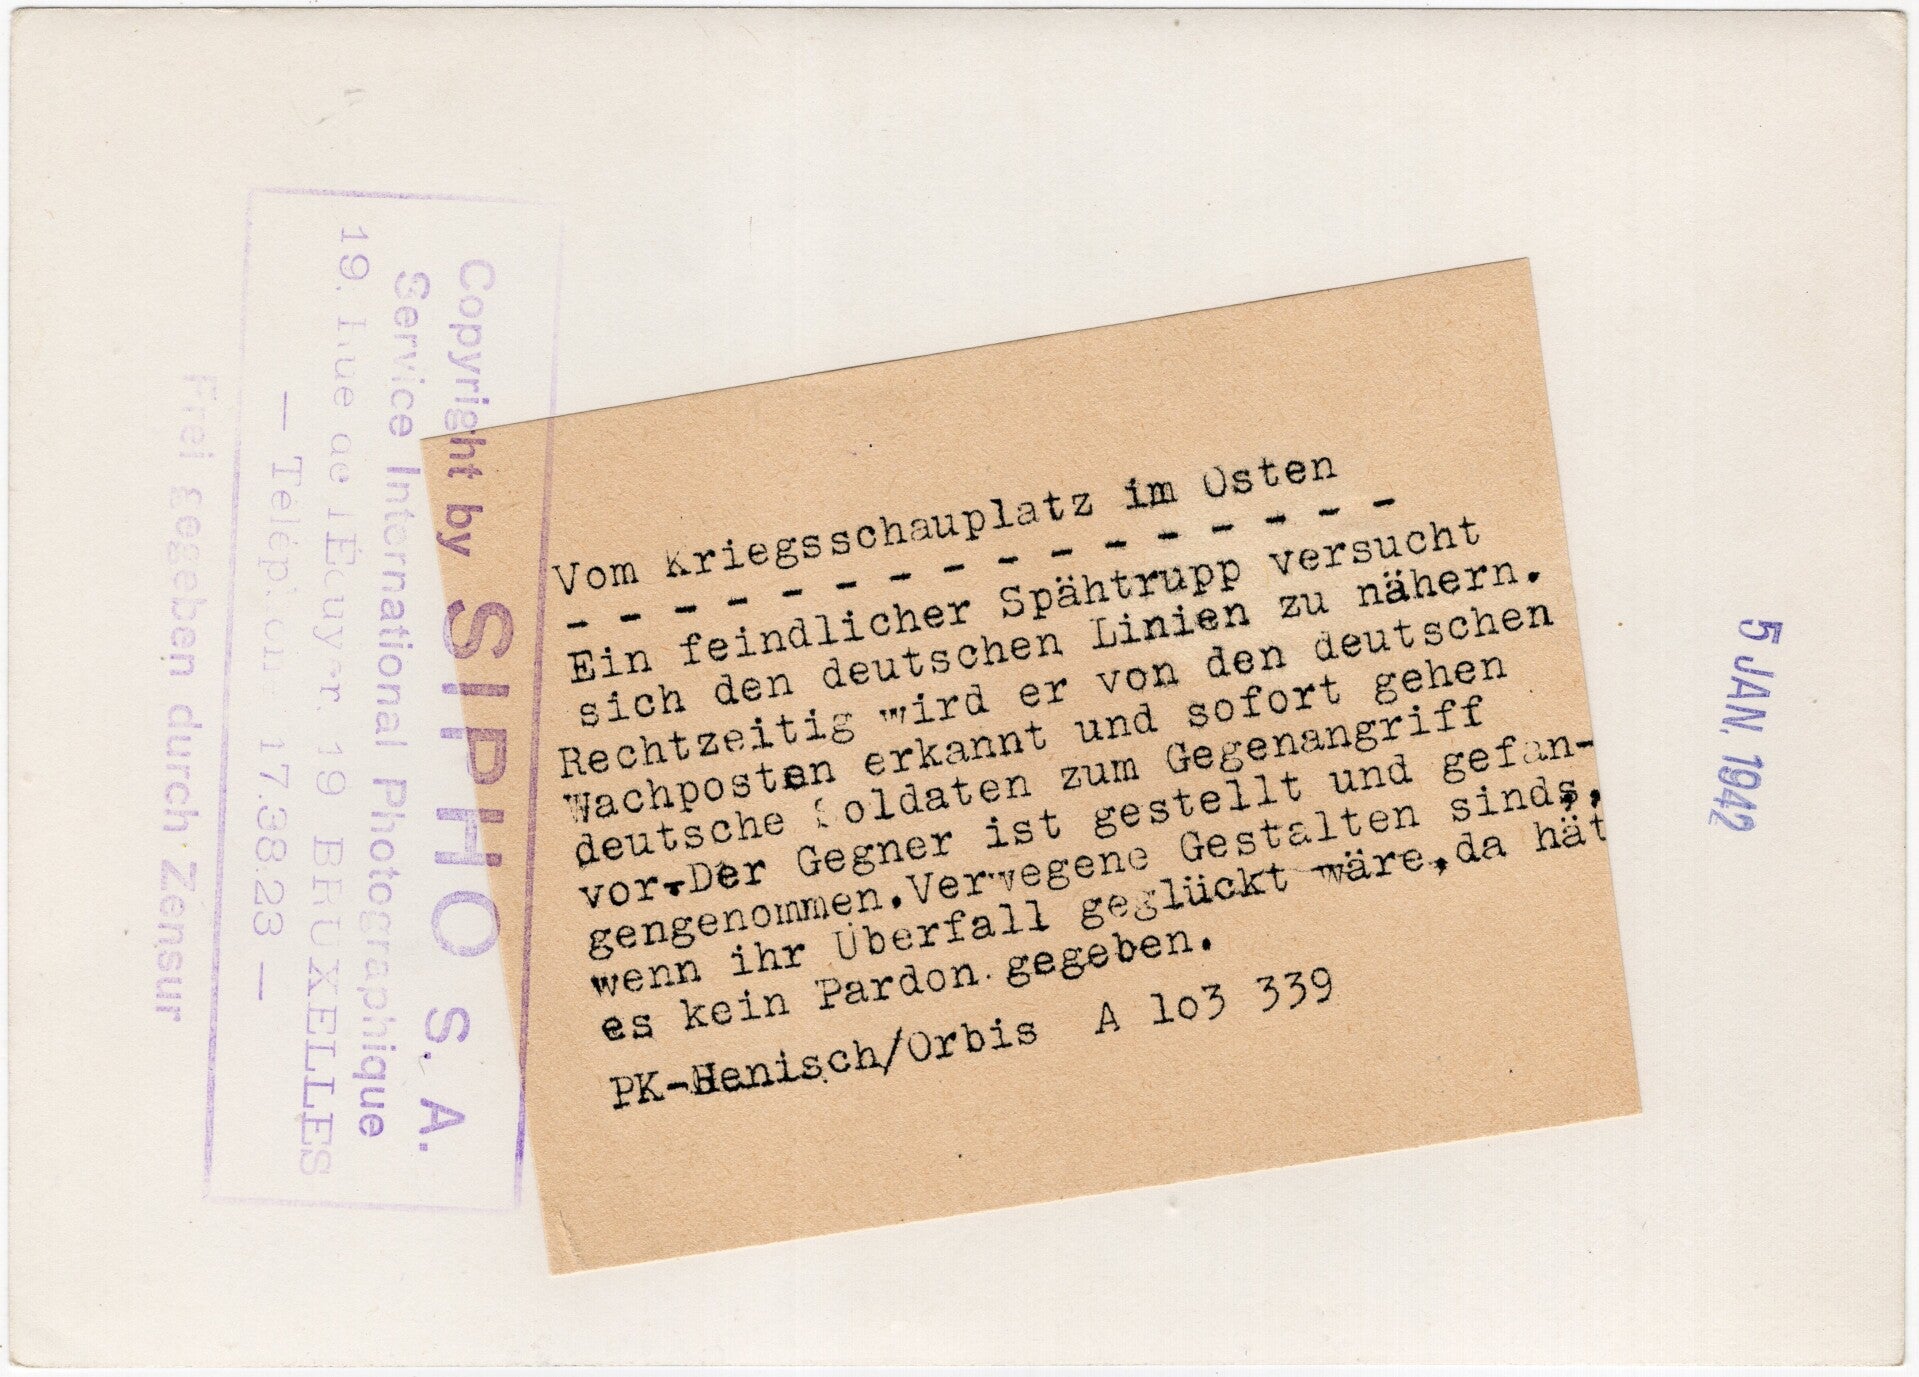 Vom Kriegsschauplatz im Osten
- - - - - - - - - - - - - - - -
Ein feindlicher Spähtrupp versucht
sich den deutschen Linien zu nähern.
Rechtzeitig wird er von den deutschen
Wachposten erkannt und sofort gehen
deutsche Soldaten zum Gegenangriff
vor.Der Gegner ist gestellt und gefan-
gengenommen.Verwegene Gestalten sinds,
wenn ihr Überfall geglückt wäre,da hät
es kein Pardon gegeben.
PK-Henisch/Orbis A lo3 339
Copyright by SIPHO S. A.
Service International Photographique
19. Rue de l'Ecuyer. 19 BRUXELLES
— Téléphon 17.38.23 —
Frei gegeben durch Zensur
5 JAN. 1942